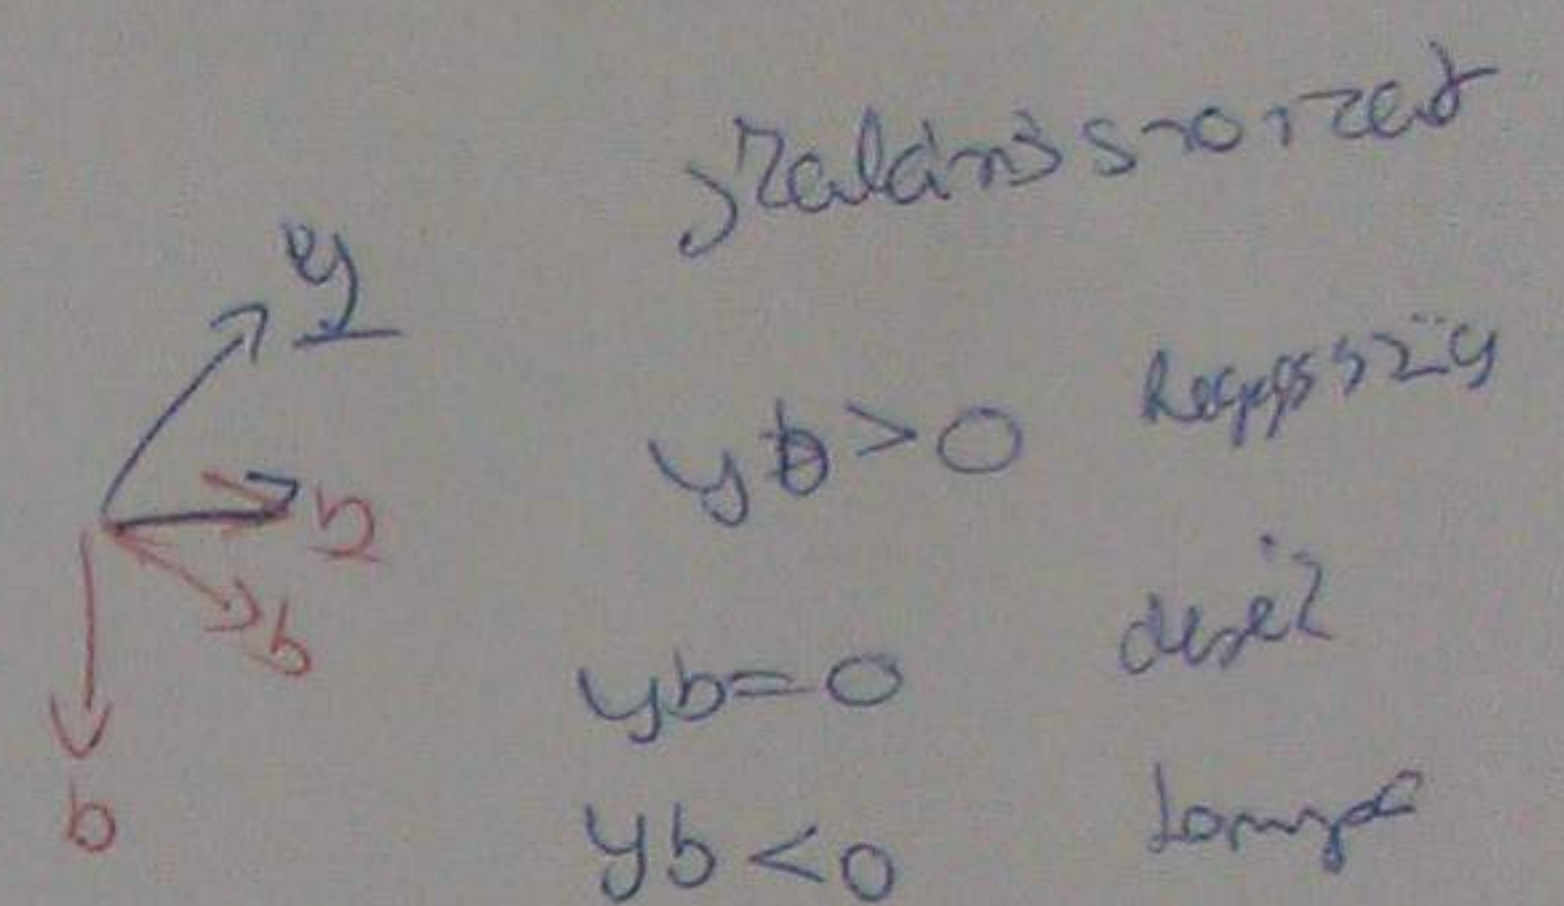 skalárisszorzat
y
yb>0 hegyesszög
b
b
yb=0 derék
b
yb<0 tompa